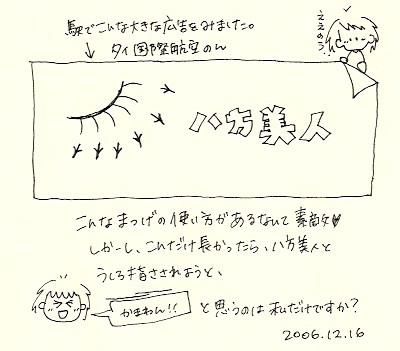 駅でこんな大きな広告をみました。
タイ国際航空のん
ええのう
八方美人
こんなまつげの使い方があるなんて素敵♥
しかーし、こんだけ長かったら、八方美人と
うしろ指さされようと、
かまわん!!
と思うのは私だけですか?
2006.12.16